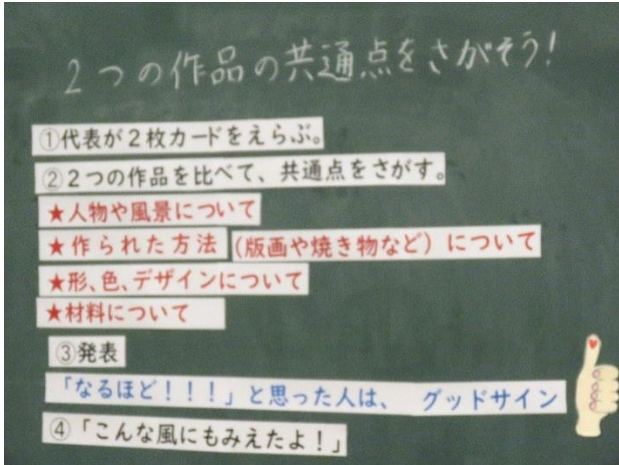 2つの作品の共通点をさがそう!
①代表が2枚カードをえらぶ。
②2つの作品を比べて、共通点をさがす。
★人物や風景について
★作られた方法(版画や焼き物など)について
★形、色、デザインについて
★材料について
③発表
「なるほど!!!」と思った人は、 グッドサイン
④「こんな風にもみえたよ!」